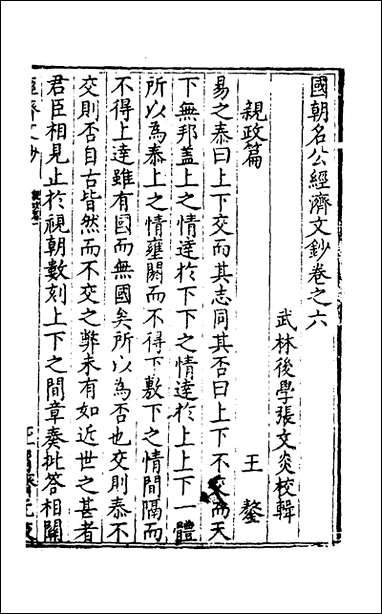 國朝名公經濟文鈔卷之六
武林後學張文炎校輯
親政篇
王鏊
易之泰曰上下交而其志同其否曰上下不交而天
下無邦蓋上之情達於下下之情達於上上下一體
所以為泰上之情壅閼而不得下敷下之情間隔而
不得上達雖有國而無國矣所以為否也交則泰不
交則否自古皆然而不交之弊未有如近世之甚者
君臣相見止於視朝數刻上下之間章奏批答相關